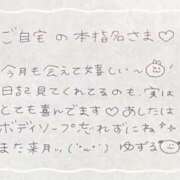 ご自宅の本指名さま♡
今月も会えて嬉しい〜
日記見てくれてるのも、実は
とても喜んでます♡あしたは
ボディソープ忘れずにね
また来月ッ。(˙ᵕ˙) ゆずる